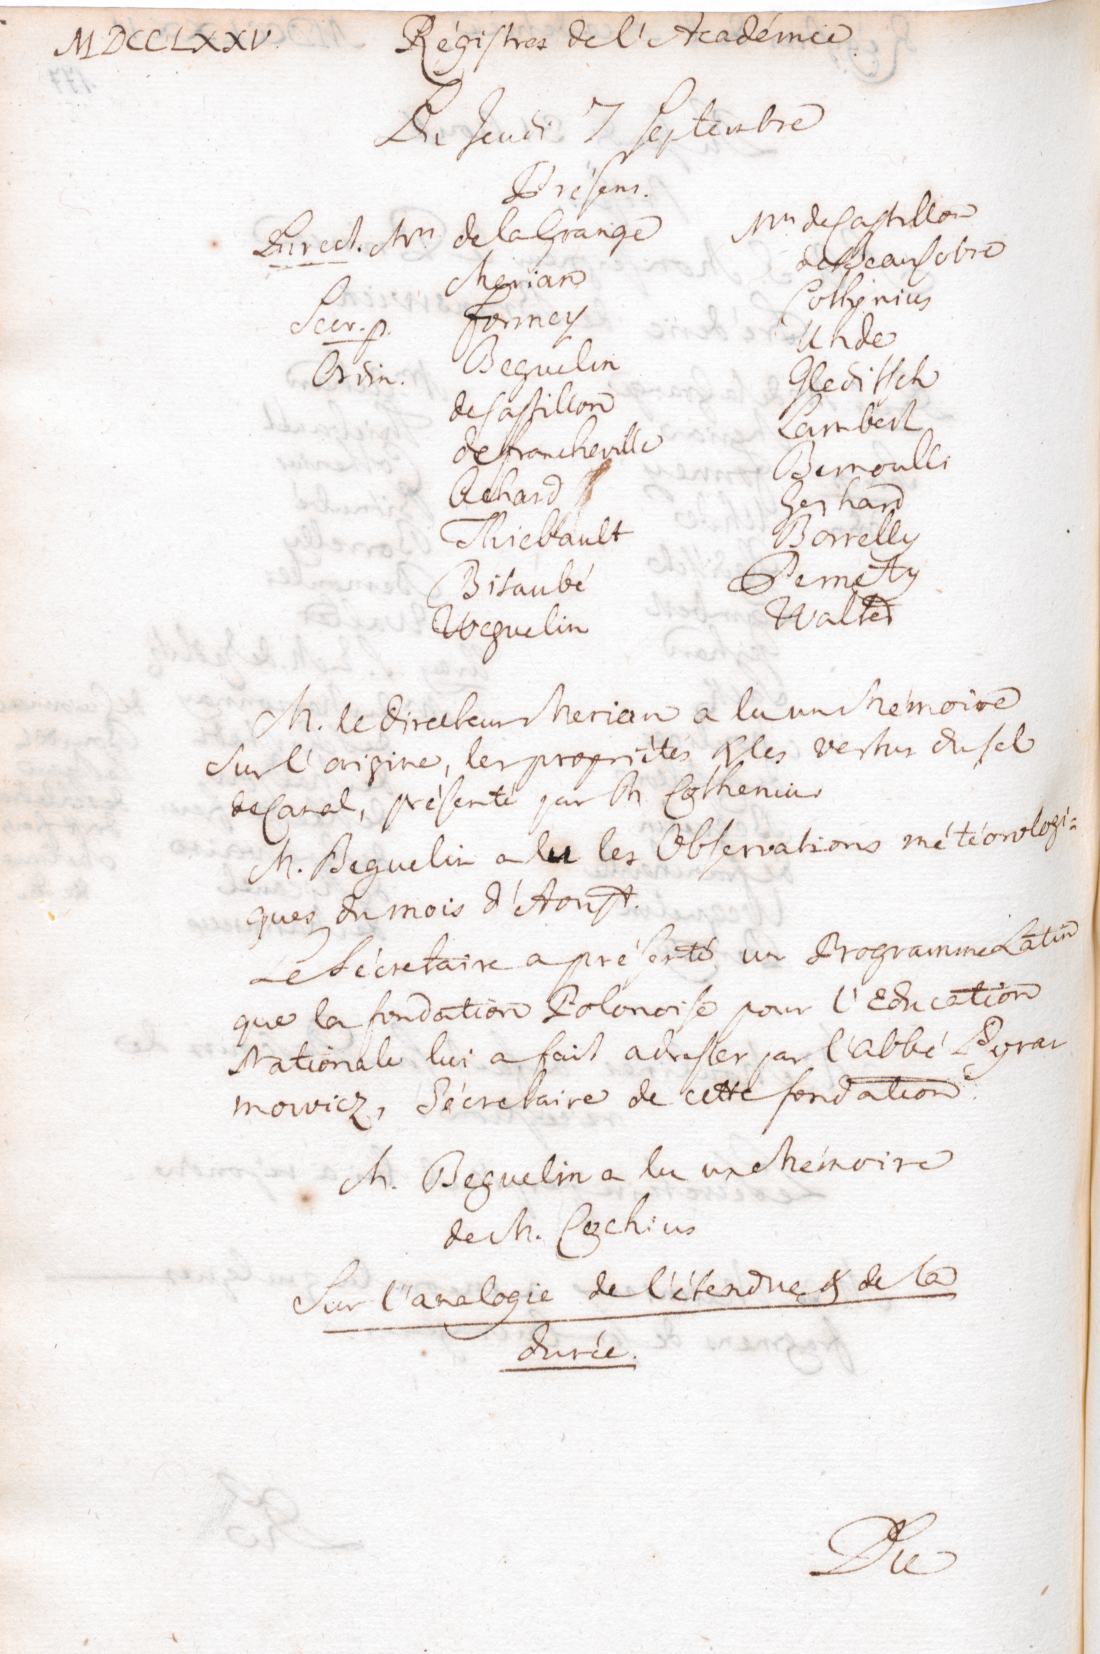 MDCCLXXV.
Régistres de l'Académie.
Du Jeudi 7 Septembre
Présens.
Direct. Mrs de la Grange
Merian
Secr. p. Formey
Ordin. Beguelin
de Castillon
de Francheville
Achard
Thiebault
Bitaubé
Weguelin
Mrs de Castillon
de Beausobre
Cothenius
Uhde
Gleditsch
Lambert
Bernoulli
Gerhard
Borrelly
Pernety
Walter
M. le Directeur Merian a lu un Mémoire
sur l'origine, les propriétés & les vertus du sel
de Canal, présenté par M. Cothenius
M. Beguelin a lu les Observations météorologi=
ques du mois d'Aoust.
Le Sécretaire a présenté un Programme Latin
que la fondation Polonoise pour l'Education
Nationale lui a fait adresser par l'abbé Pyrar
mowicz, Sécretaire de cette fondation.
M. Beguelin a lu un Mémoire
de M. Cochius
Sur l'analogie de l'étendue & de la
durée.
Du